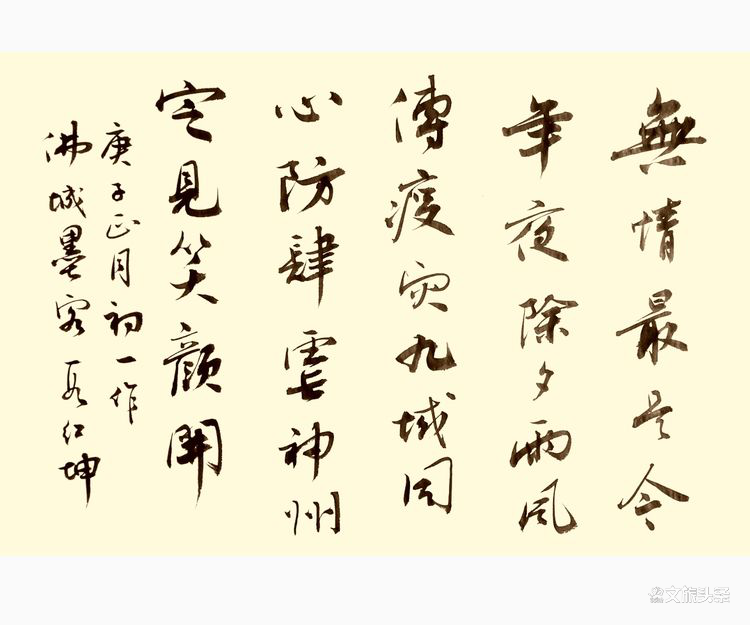 無情最是今
年夜除夕雨風
傳疫灾九域同
心防肆虐神州
定見笑顏開
庚子正月初一作
佛城墨客 红坤
文旅头条